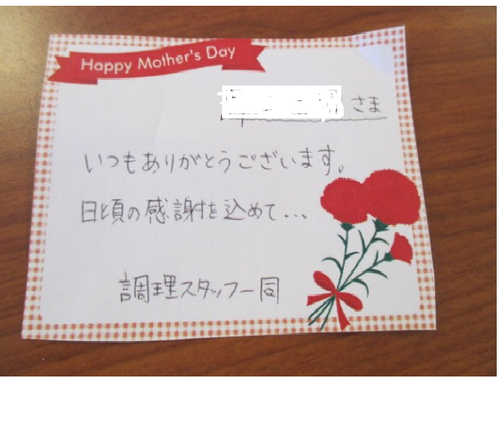 Happy Mother's Day
さま
いつもありがとうございます。
日頃の感謝を込めて...
調理スタッフ一同